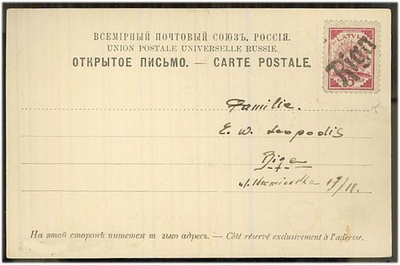 ВСЕМІРНЫЙ ПОЧТОВЫЙ СОЮЗЪ, РОССІЯ.
UNION POSTALE UNIVERSELLE RUSSIE.
ОТКРЫТОЕ ПИСЬМО. — CARTE POSTALE.
LATVIJA
Riga
Familie.
E. W. Leopodis
Riga
17/18.
На этой сторонѣ пишется т лько адресъ. — Côté réservé exclusivement à l'adresse.